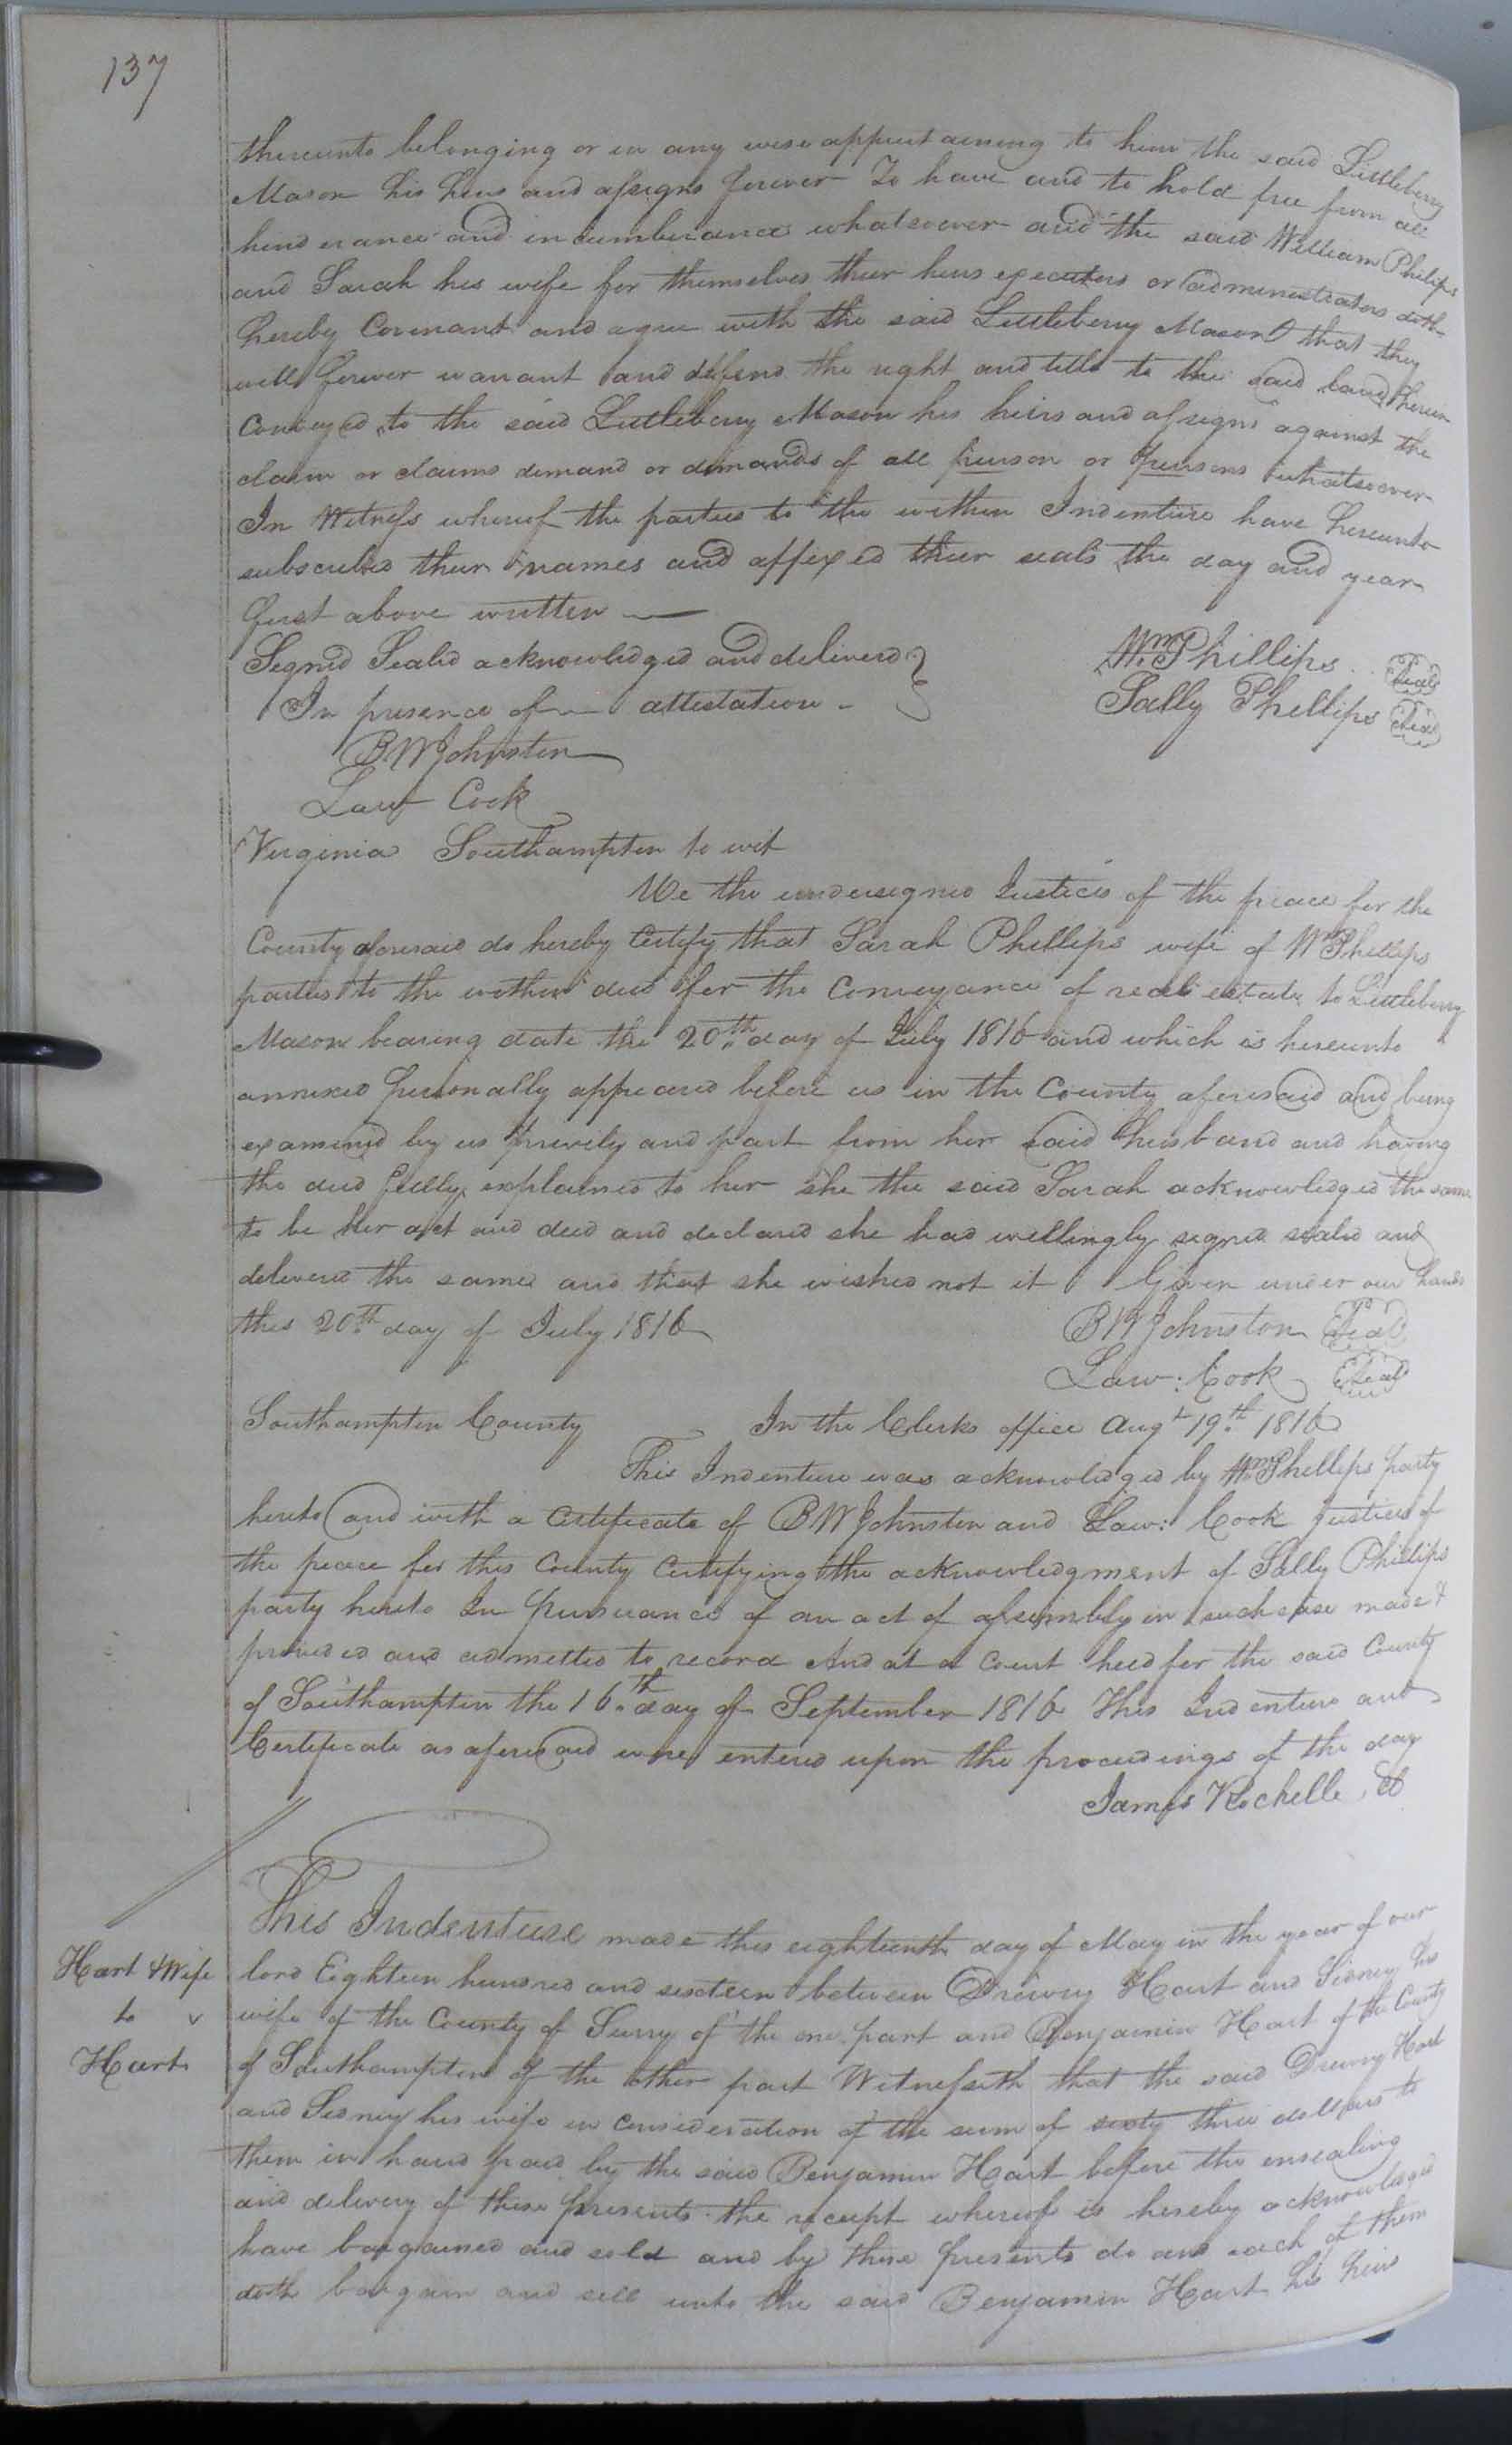 137
thereunto belonging or in any wise appertaining to him the said Littleberry
Mason his heirs and assigns forever To have and to hold free from all
hinderance and incumberance whatsoever and the said William Philips
and Sarah his wife for themselves their heirs executors or administrators doth
hereby Covenant and agree with the said Littleberry Mason that they
will forever warrant and defend the right and title to the said land herein
Conveyed to the said Littleberry Mason his heirs and assigns against the
claim or claims demand or demands of all person or persons whatsoever
In Witness whereof the parties to the within Indenture have hereunto
subscribed their names and affixed their seals the day and year
first above written
Signed Sealed acknowledged and delivered } Wm Phillips Seal
In presence of attestation Sally Phillips Seal
B W Johnston
Law Cook
Virginia Southampton to wit
We the undersigned Justices of the peace for the
County aforesaid do hereby Certify that Sarah Phillips wife of Wm Phillips
parties to the within deed for the Conveyance of real estate to Littleberry
Mason bearing date the 20th day of July 1816 and which is hereunto
annexed personally appeared before us in the County aforesaid and being
examined by us privily and part from her said husband and having
the deed fully explained to her she the said Sarah acknowledged the same
to be her act and deed and declared she had willingly signed sealed and
delivered the same and that she wished not it Given under our hands
this 20th day of July 1816 B W Johnston Seal
Law: Cook Seal
Southampton County In the Clerks office Augt 19th 1816
This Indenture was acknowledged by Wm Phillips party
hereto and with a Certificate of B W Johnston and Law: Cook Justices of
the peace for this County Certifying the acknowledgment of Sally Phillips
party hereto In Pursuance of an act of assembly in such case made &
provided and admitted to record And at a Court held for the said County
of Southampton the 16th day of September 1816 This Indenture and
Certificate as aforesaid were entered upon the proceedings of the day
James Rochelle
This Indenture made this eighteenth day of May in the year of our
Hart & Wife
to
Hart
lord Eighteen hundred and sixteen between Drewry Hart and Sidney his
wife of the County of Surry of the one part and Benjamin Hart of the County
of Southampton of the other part Witnesseth that the said Drewry Hart
and Sidney his wife in Consideration of the sum of sixty three dollars to
them in hand paid by the said Benjamin Hart before the ensealing
and delivery of these presents the receipt whereof is hereby acknowledged
have bargained and sold and by these presents do and each of them
doth bargain and sell unto the said Benjamin Hart his heirs